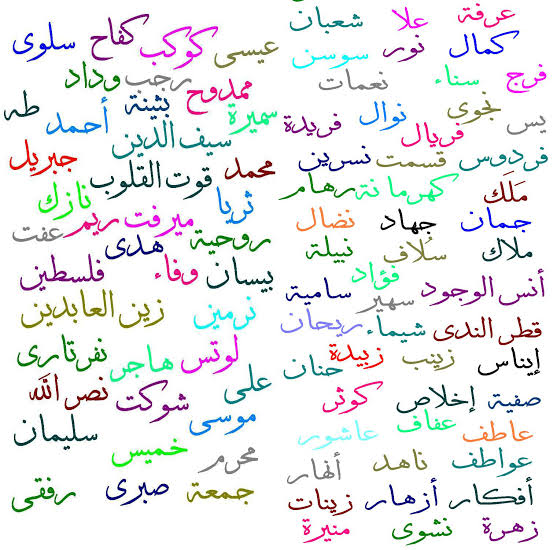 عرفة علا شعبان
كمال نور سوسن
فرج سناء نعمات
يس نجوى نوال فريال فريدة
فردوس قسمت نسرين
مَلَك كهرمانة رهام
جمان جهاد نضال
ملاك سُلاف نبيلة
فؤاد
أنس الوجود سهير سامية
قطر الندى شيماء ريحان
إيناس زينب زبيدة حنان
صفية إخلاص كوثر
عاطف عفاف عاشور
عواطف ناهد أنهار
أفكار أزهار زينات
زهرة نشوى منيرة
عيسى كوكب كفاح سلوى
رجب وداد
ممدوح بثينة طه
سميرة أحمد
سيف الدين
محمد جبريل
قوت القلوب
ثريا نازك
ميرفت ريم عفت
روحية هدى
بيسان وفاء فلسطين
نرمين زين العابدين
لوتس هاجر نفرتارى
على شوكت نصر الله
موسى سليمان
محرم خميس
جمعة صبرى رفقى